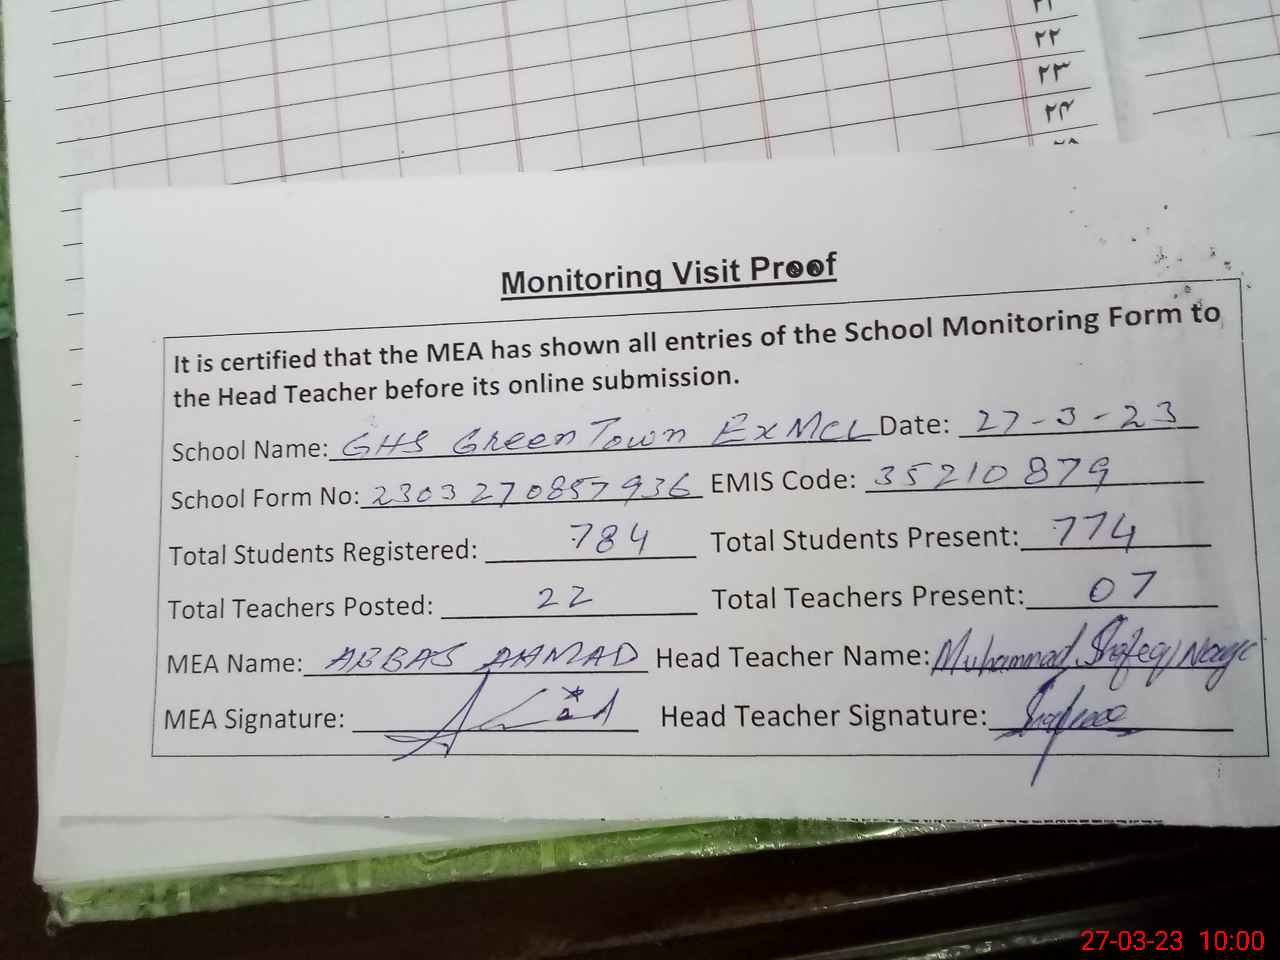 ۲۲
۲۳
۲۴
Monitoring Visit Proof
It is certified that the MEA has shown all entries of the School Monitoring Form to
the Head Teacher before its online submission.
School Name: GHS Green Town Ex MCL Date: 27-3-23
School Form No: 2303270857936 EMIS Code: 35210879
Total Students Registered: 784 Total Students Present: 774
Total Teachers Posted: 22 Total Teachers Present: 07
MEA Name: ABBAS AHMAD Head Teacher Name: Muhammad
MEA Signature: Head Teacher Signature:
27-03-23 10:00